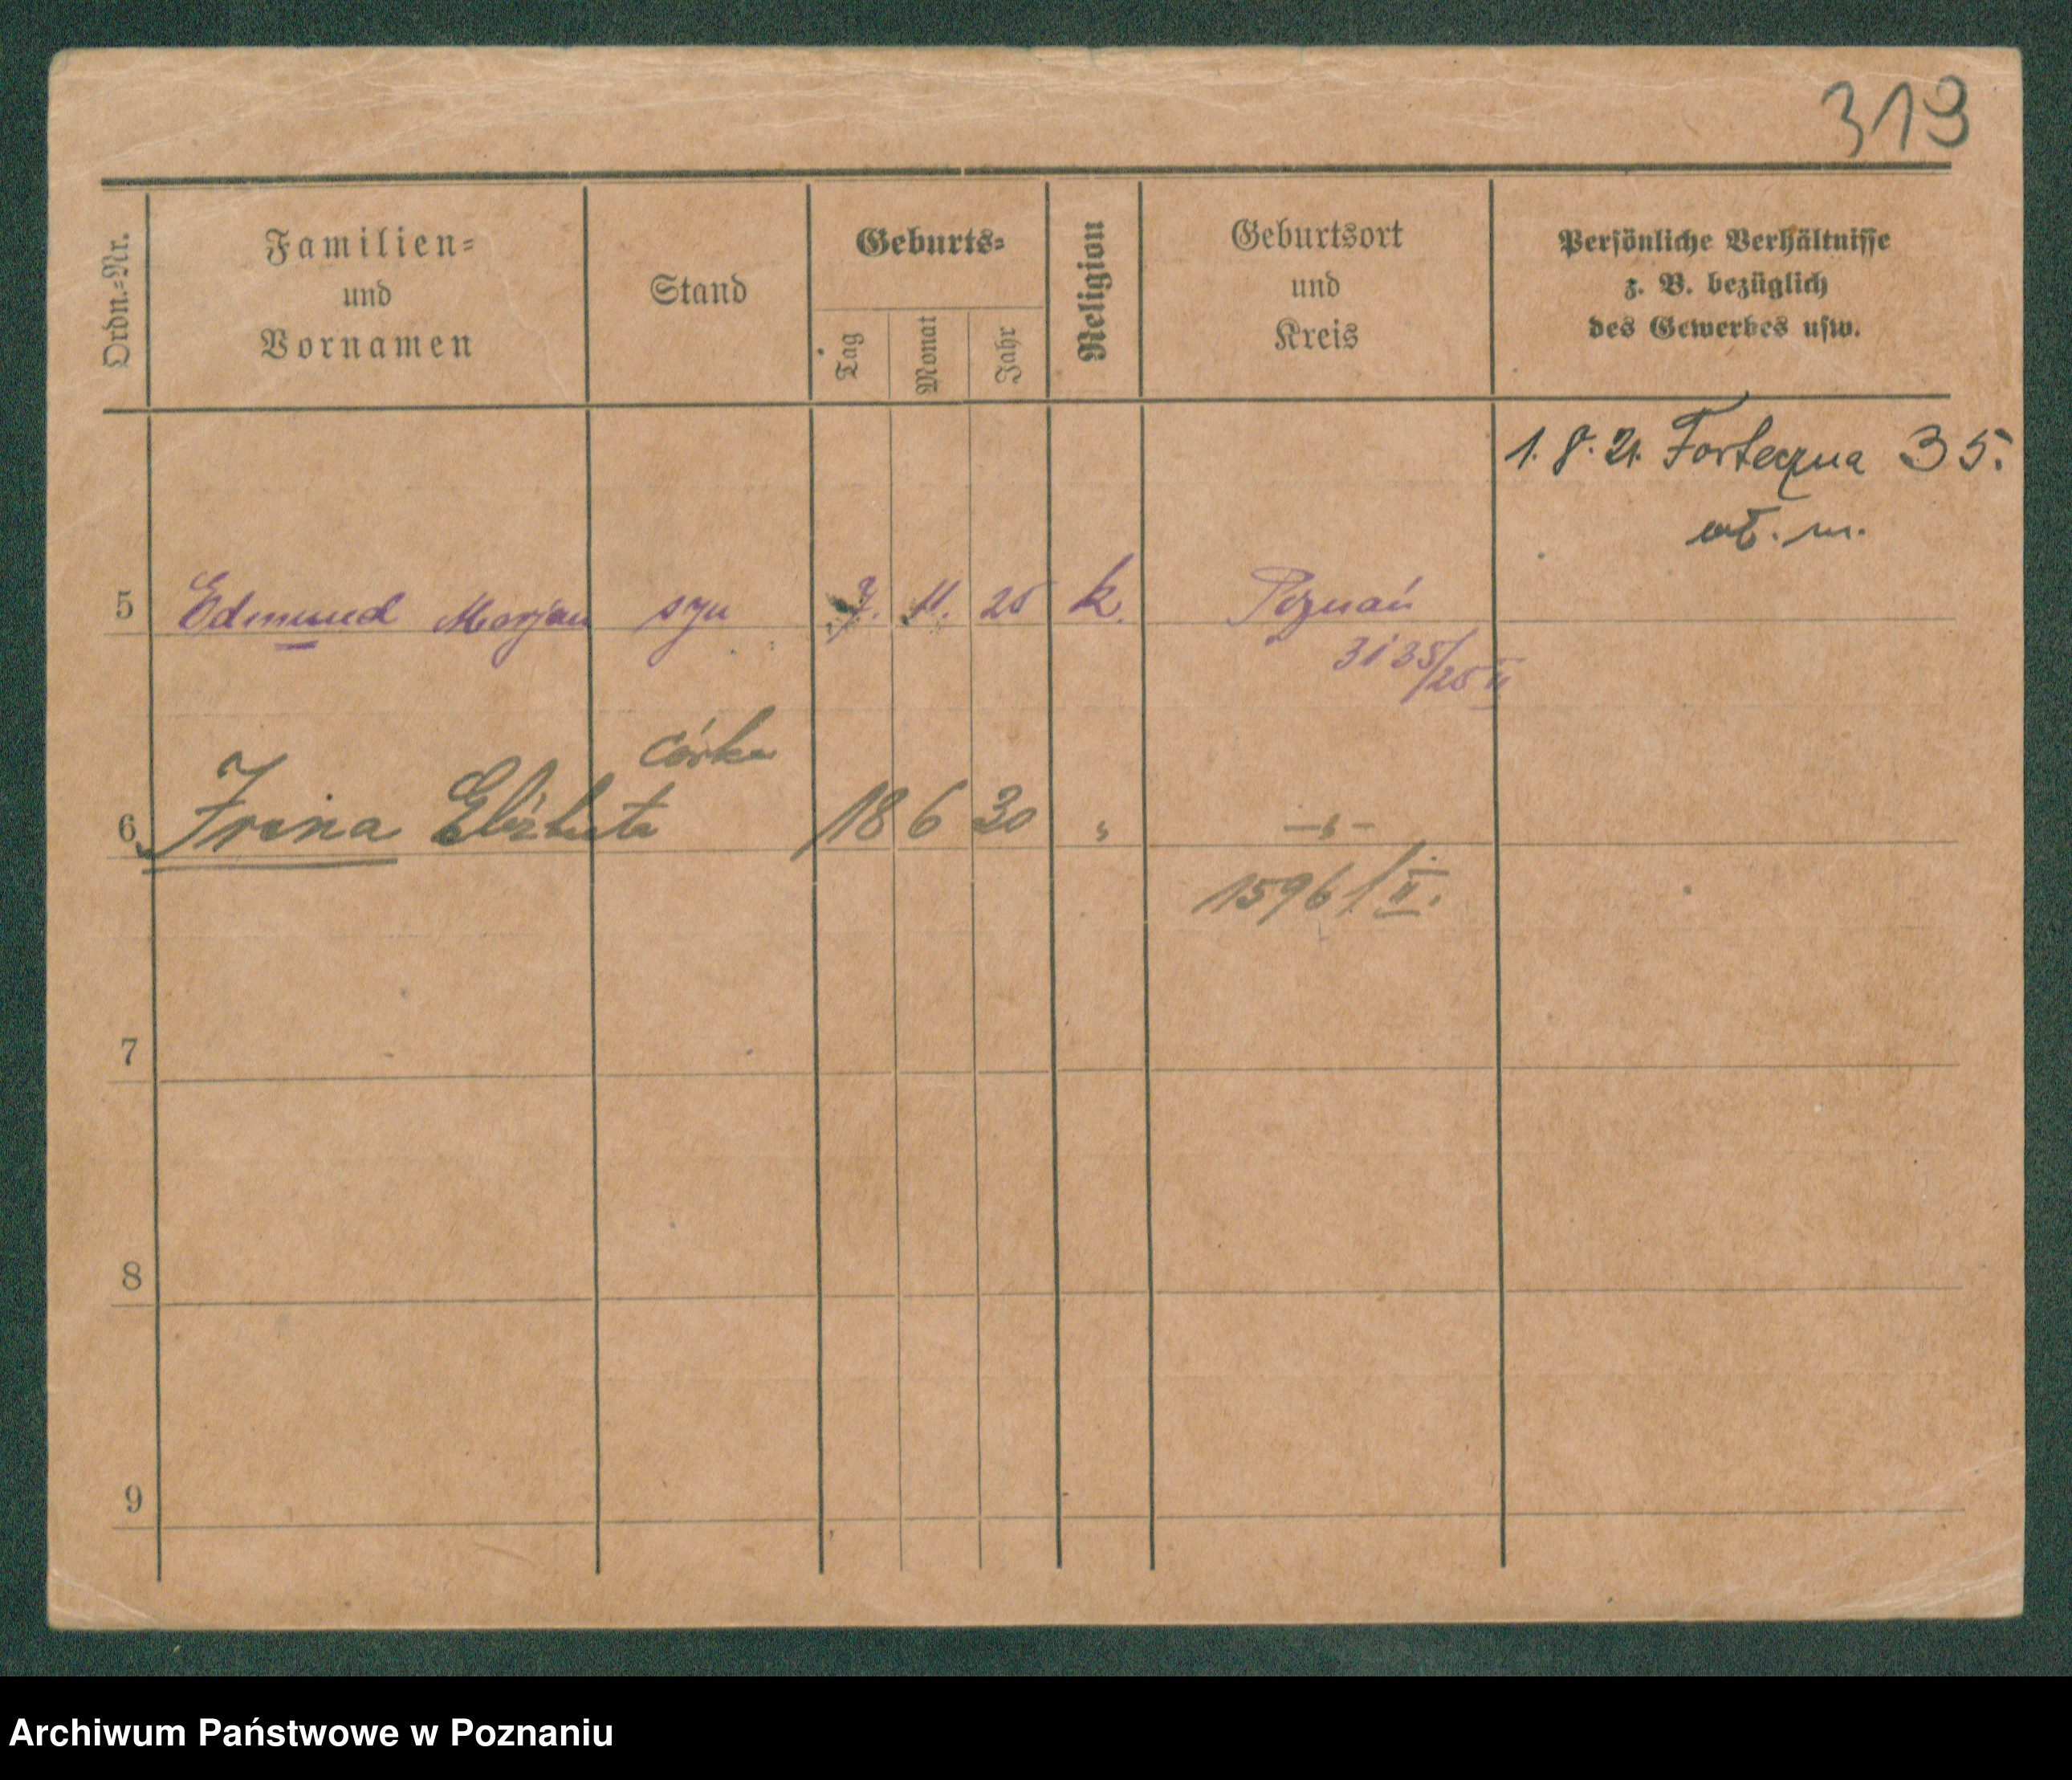 319
Ordn.-Nr.
Familien-
und
Vornamen
Stand
Geburts-
Tag
Monat
Jahr
Religion
Geburtsort
und
Kreis
Persönliche Verhältnisse
z. B. bezüglich
des Gewerbes usw.
1. 8. 21. Forteczna 35.
wł. m.
5 Edmund Marjan syn 7. 11. 25 k. Poznań
3135/25 II
córka
6 Irena Elżbieta 18 6 30 " —"—
1596/II.
7
8
9
Archiwum Państwowe w Poznaniu